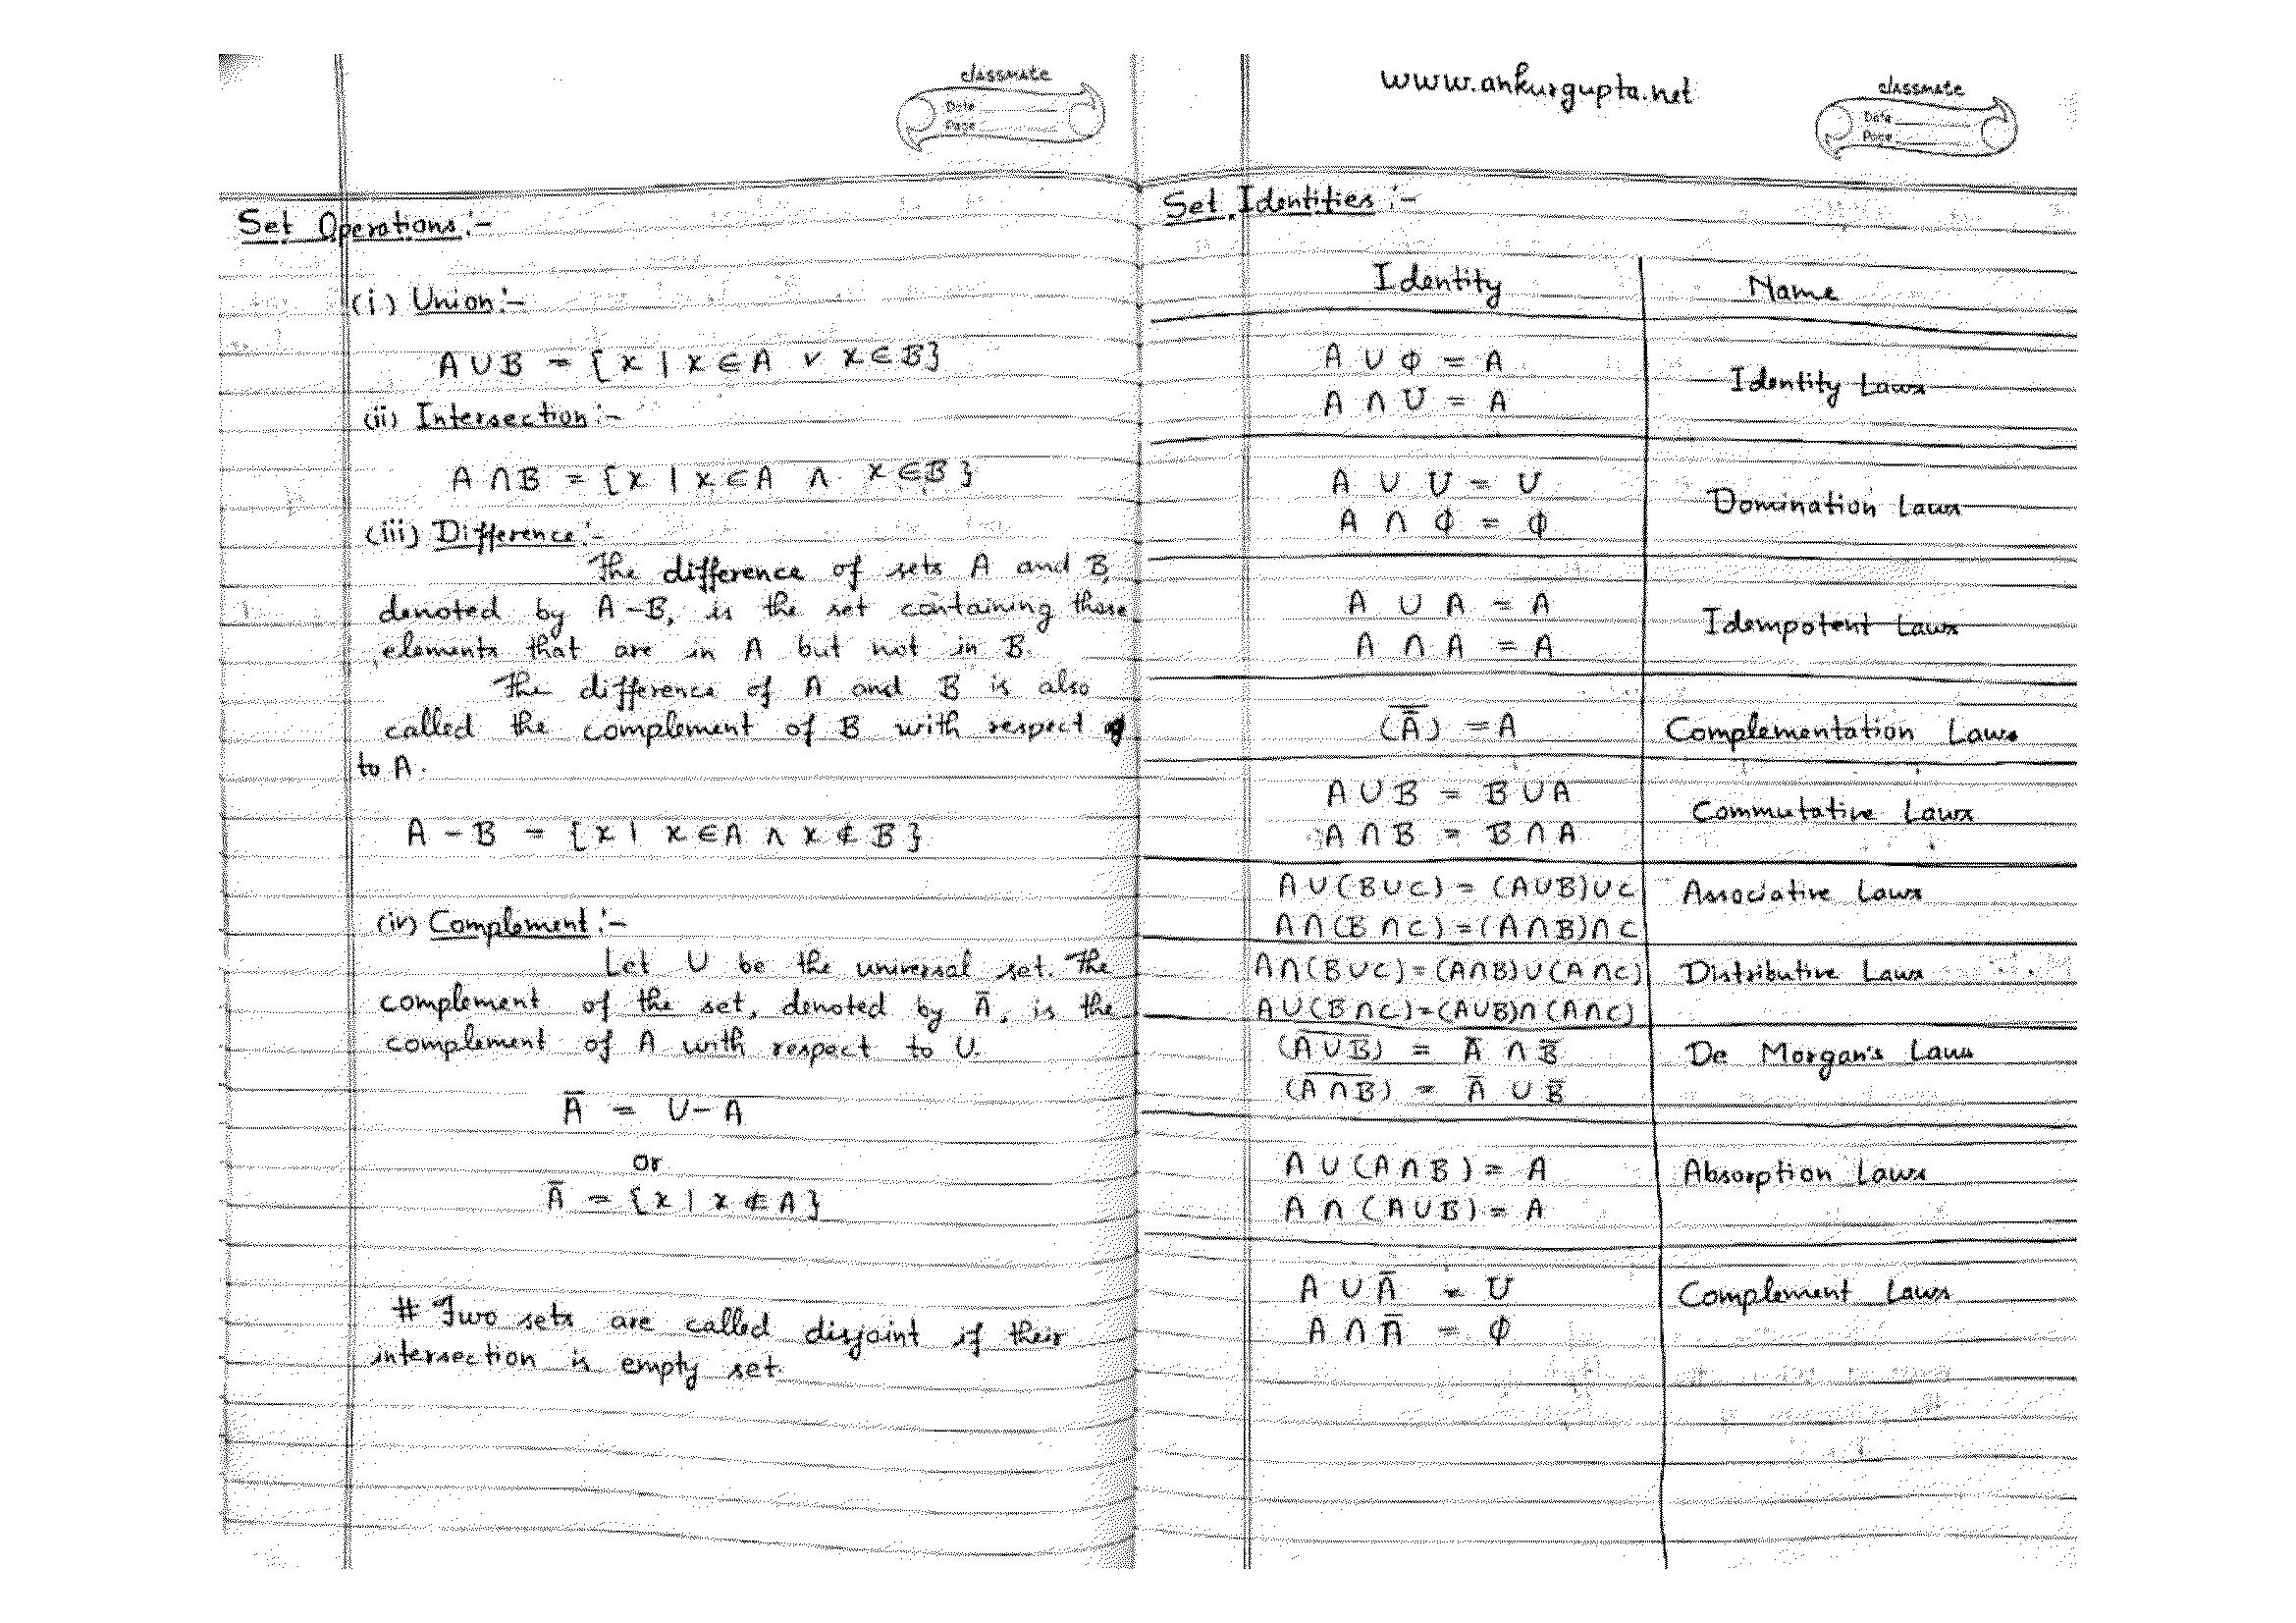 classmate
Date
Page
Set Operations :-
(i) Union :-
A ∪ B = {x | x ∈ A ∨ x ∈ B}
(ii) Intersection :-
A ∩ B = {x | x ∈ A ∧ x ∈ B}
(iii) Difference :-
The difference of sets A and B,
denoted by A - B, is the set containing those
elements that are in A but not in B.
The difference of A and B is also
called the complement of B with respect
to A.
A - B = {x | x ∈ A ∧ x ∉ B}
(iv) Complement :-
Let U be the universal set. The
complement of the set, denoted by A̅, is the
complement of A with respect to U.
A̅ = U - A
or
A̅ = {x | x ∉ A}
# Two sets are called disjoint if their
intersection is empty set.
www.ankurgupta.net
classmate
Date
Page
Set Identities :-
Identity Name
A ∪ ϕ = A
A ∩ U = A
Identity Laws
A ∪ U = U
A ∩ ϕ = ϕ
Domination Laws
A ∪ A = A
A ∩ A = A
Idempotent Laws
(A̿) = A Complementation Laws
A ∪ B = B ∪ A
A ∩ B = B ∩ A
Commutative Laws
A ∪ (B ∪ C) = (A ∪ B) ∪ C Associative Laws
A ∩ (B ∩ C) = (A ∩ B) ∩ C
A ∩ (B ∪ C) = (A ∩ B) ∪ (A ∩ C) Distributive Laws
A ∪ (B ∩ C) = (A ∪ B) ∩ (A ∩ C)
(A̅ ∪̅ B̅) = A̅ ∩ B̅ De Morgan's Laws
(A̅ ∩̅ B̅) = A̅ ∪ B̅
A ∪ (A ∩ B) = A Absorption Laws
A ∩ (A ∪ B) = A
A ∪ A̅ = U Complement Laws
A ∩ A̅ = ϕ